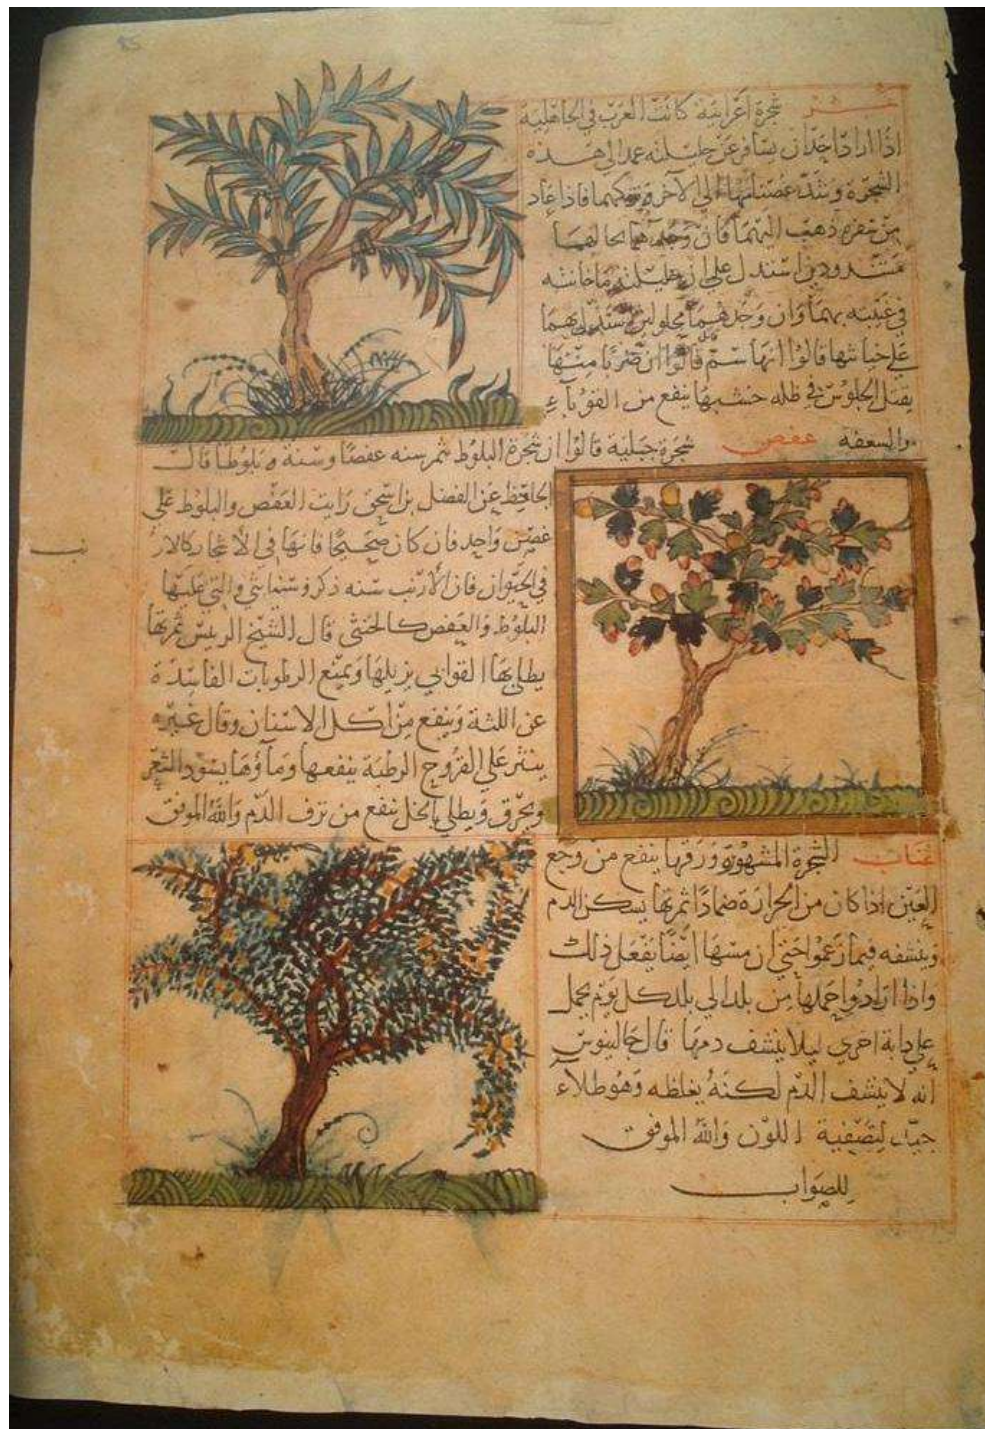 عشر شجرة اعرابية كانت العرب في الجاهلية
اذا اراد احد ان يسافر عن حليلته عمد الي هذه
الشجرة وشد غصنا منها الي الاخر وتركهما فاذا عاد
من سفره ذهب اليهما فان وجدهما بحالهما
مشدودين استدل علي ان حليلته ما خانته
في غيبته بهما وان وجدهما محلولين استدل بهما
علي خيانتها قالوا انها سم قالوا ان ضربا منها
يقتل الجلوس في ظله خشبها ينفع من القوباء
والسعفة عفص شجرة جبلية قالوا ان شجرة البلوط تثمر سنه عفصا وسنة بلوطا قال
الجاحظ عن الفضل بن اسحق رايت العفص والبلوط علي
غصن واحد فان كان صحيحا فانها في الاشجار كالارنب
في الحيوان فان الارنب سنه ذكر وسنة انثي والتي عليها
البلوط والعفص كالخنثي قال الشيخ الرييس ثمرتها
يطلي بها القوابي يزيلها ويمنع الرطوبات الفاسدة
عن اللثة وينفع من اكل الاسنان وقال غيره
ينثر علي القروح الرطبة ينفعها وماؤها يسود الشعر
ويحرق ويطلي بالخل ينفع من نزف الدم والله الموفق
عناب الشجرة المشهورة ورقها ينفع من وجع
العين اذا كان من الحرارة ضمادا ثمرتها يسكن الدم
وينشفه فيما زعموا حتي ان مسها ايضا يفعل ذلك
واذا ارادوا حملها من بلد الي بلد كل يوم يحمل
علي دابة اخري ليلا ينشف دمها قال جالينوس
انه لا ينشف الدم لكنه يغلظه وهو طلاء
جيد لتصفية اللون والله الموفق
للصواب